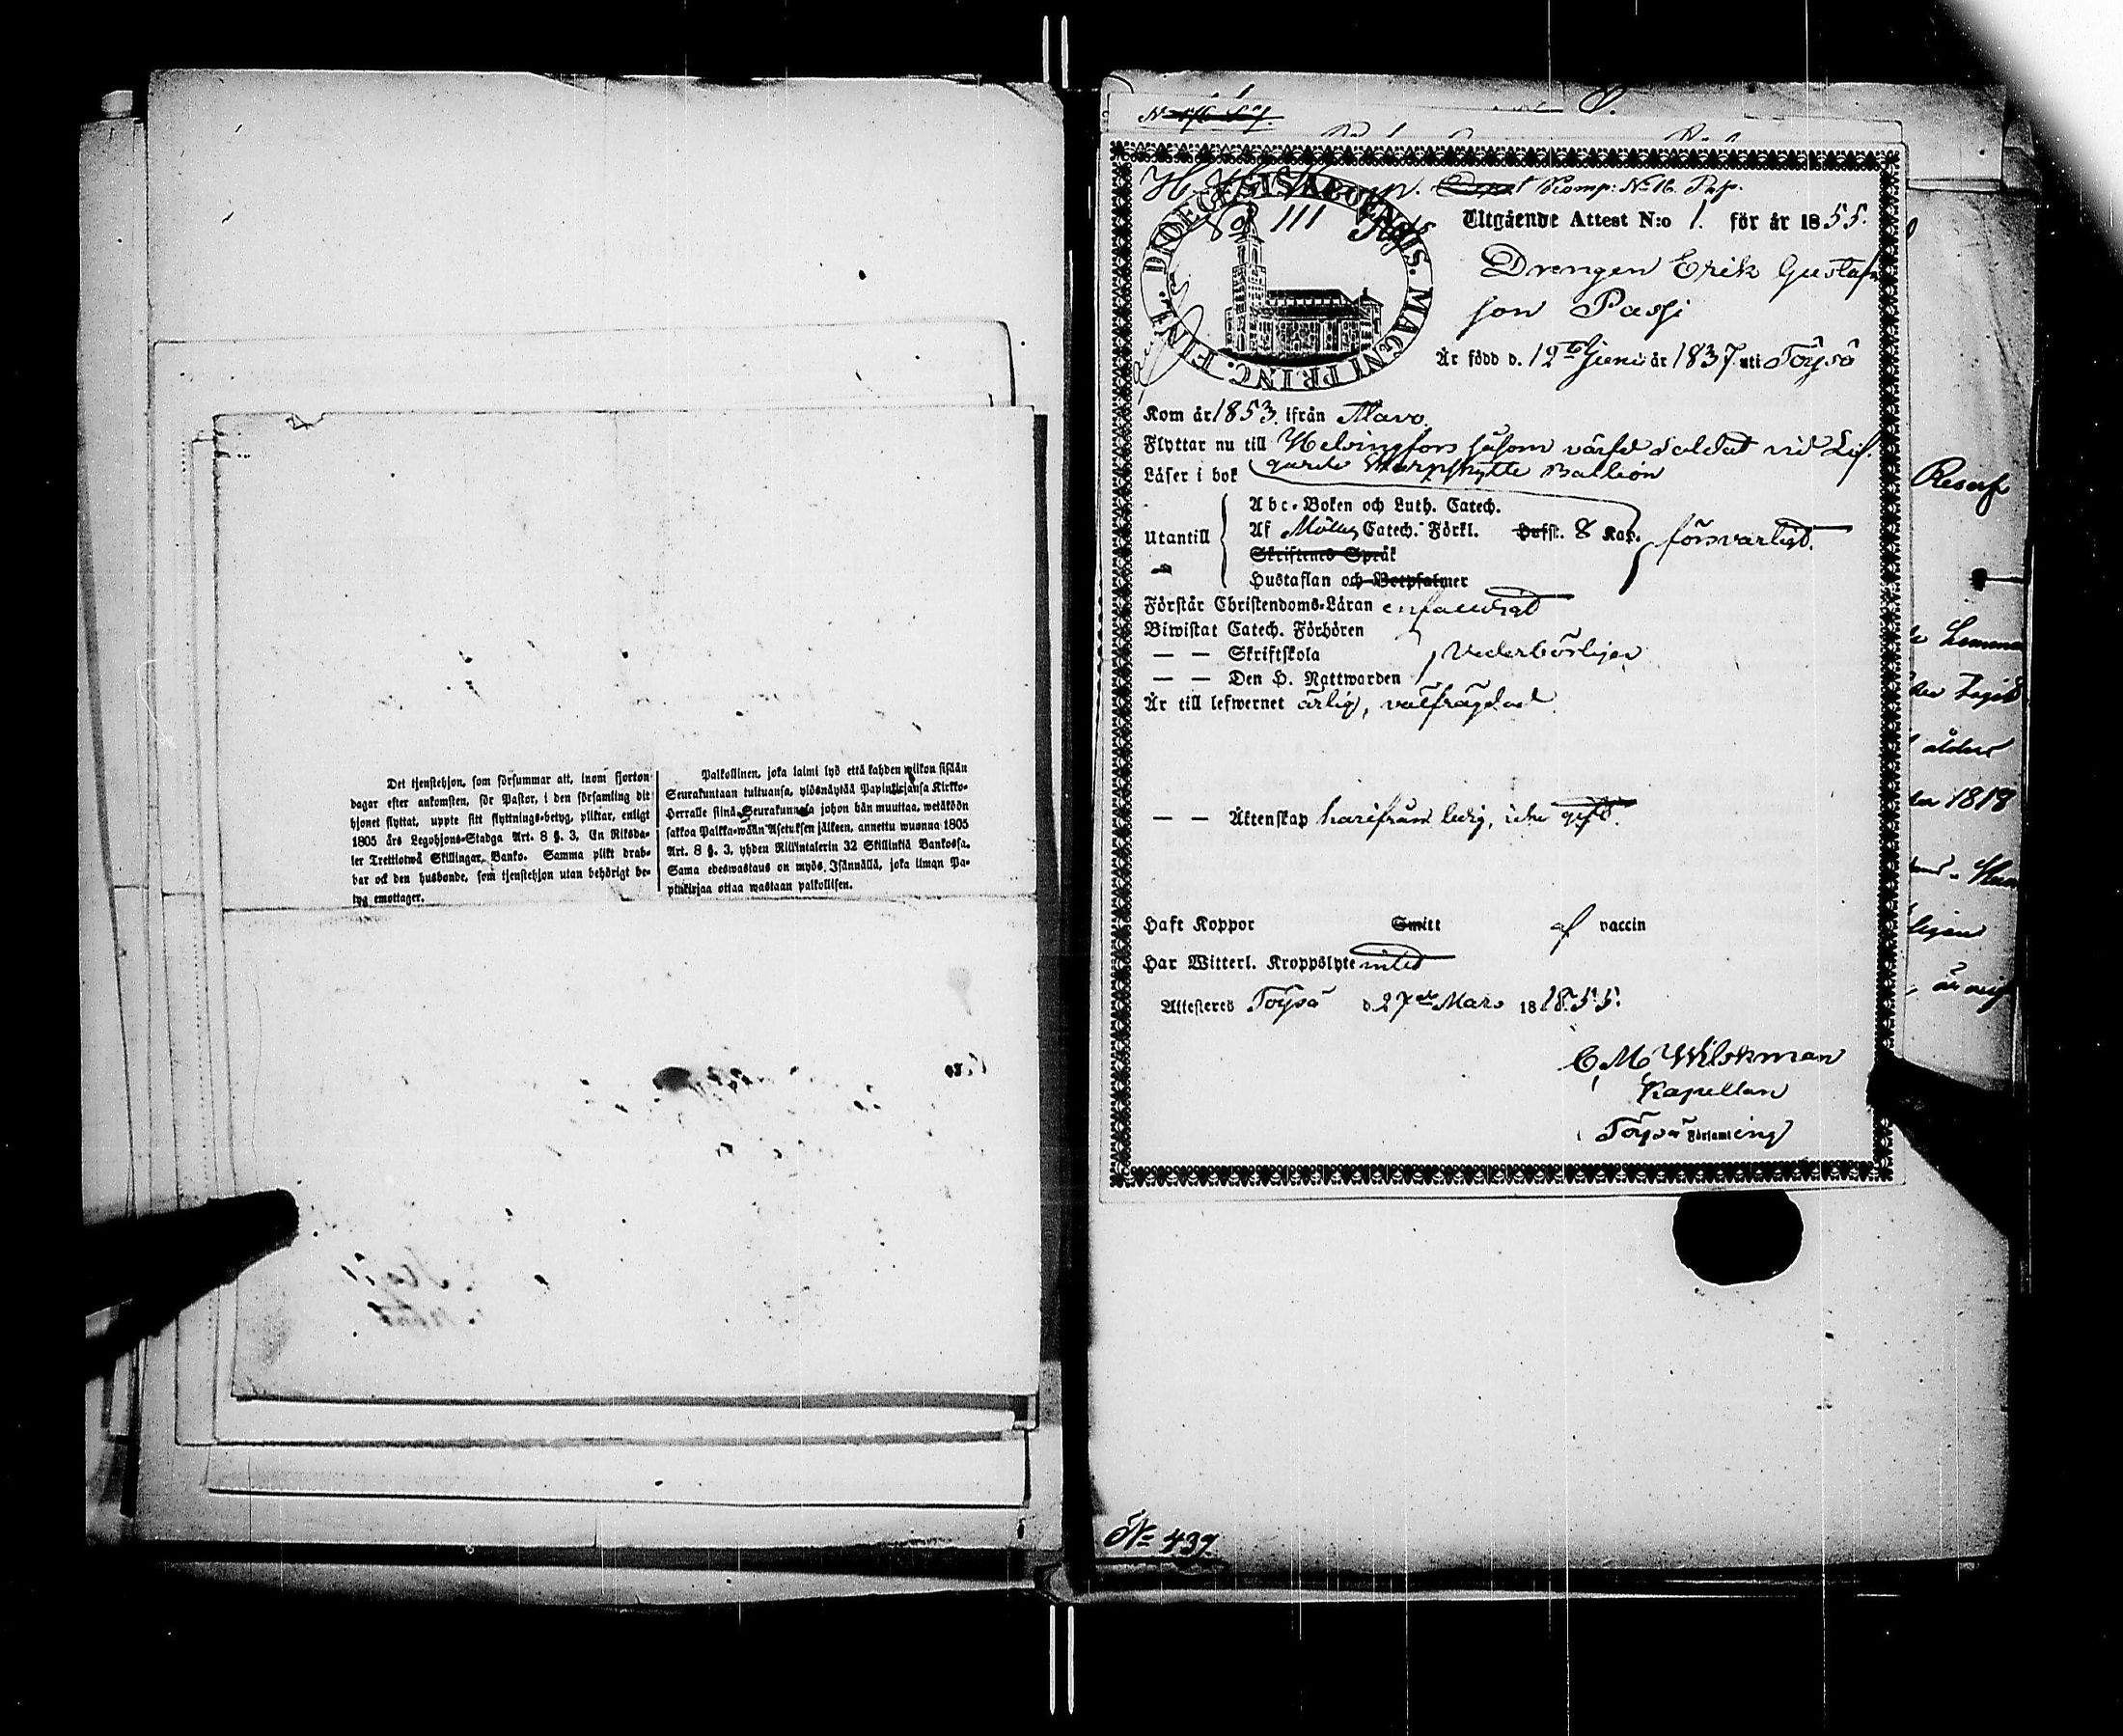 Det tjenstehjon, som försummar att, inom fjorton
dagar efter ankomsten, för Pastor, i den församling dit
hjonet flyttat, uppte sitt flyttnings-betyg, pliktar, enligt
1805 års Legohjons-Stadga Art. 8 §. 3, En Riksda-
ler Trettiotwå Skillingar Banko. Samma plikt drab-
bar ock den husbonde, som tjenstehjon utan behörigt be-
tyg emottager.
Palkollinen, joka laimi lyö että kahden wiikon sisään
Seurakuntaan tultuansa, ylösnäyttää Papinkirjansa Kirkko-
Herralle siinä Seurakunnasa johon hän muuttaa, wetäköön
sakkoa Palkka-wään Asetuksen jälkeen, annettu wuonna 1805
Art. 8 §. 3, yhden Riikintalerin 32 Skillinkiä Bankossa.
Sama edeswastaus on myös Isännällä, joka ilman Pa-
pinkirjaa ottaa wastaan palkollisen.
Komp: No 16. Pap.
DIOECESIS ABOENSIS. MAGNI PRINC. FINL.
111
Utgående Attest N:o 1. för år 1855.
Drengen Erik Gustaf
son Passi
Är född d. 12te Juni år 1837. uti Töysä
Kom år 1853. ifrån Alavo.
Flyttar nu till Helsingfors såsom värfd soldat vid Lif
garde Skarpskytte Batteion
Läser i bok
Abc-Boken och Luth. Catech.
Utantill Af Möllers Catech. Förkl. Husst. 8 Kap. försvarligt.
Skriftenes Språk
Hustaflan och Botpsalmer
Förstår Christendoms-Läran enfaldigt
Biwistat Catech. Förhören
— — Skriftskola vederbörligen
— — Den H. Nattwarden
Är till lefwernet ärlig, välfrägdad
— — Äktenskap härifrån ledig, icke gift.
Haft Koppor Smitt af vaccin
Har Witterl. Kroppslyte intet
Attesteres Töysä d. 27de Mars 18 1855.
C M Wilskman
Kapellan
Töysä Församling
Reserf
åldur
1818
No 437.